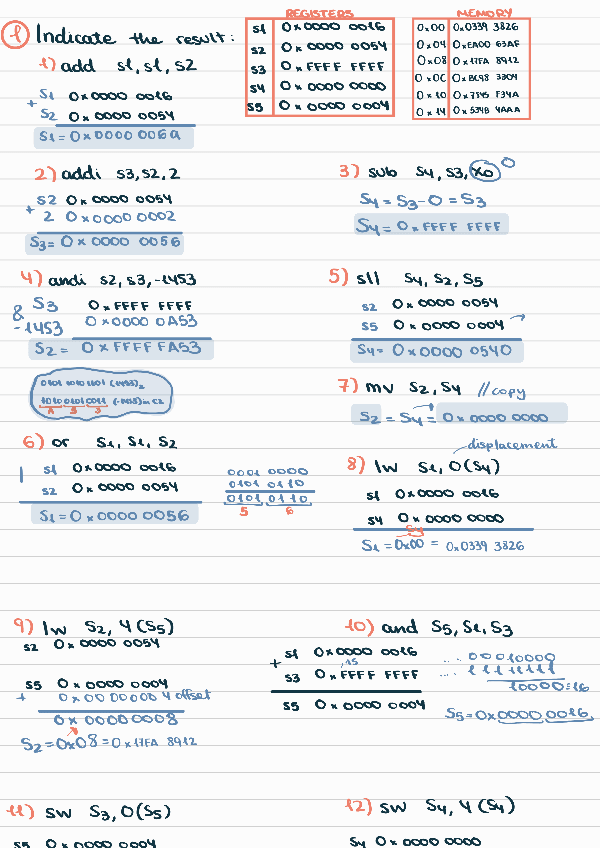 REGISTERS
MEMORY
1 Indicate the result:
S1 0x0000 0016
S2 0x0000 0054
S3 0xFFFF FFFF
S4 0x0000 0000
S5 0x0000 0004
0x00 0x0339 3826
0x04 0xEA00 63AF
0x08 0x17FA 8912
0x0C 0xBC98
0x10 F34A
0x14 0x534B 4AAA
1) add s1, s1, s2
S1 0x0000 0016
+
S2 0x0000 0054
S1 = 0x0000 006A
2) addi s3, s2, 2
S2 0x0000 0054
+
2 0x0000 0002
S3 = 0x0000 0056
3) sub S4, S3, x0 0
S4 = S3 - 0 = S3
S4 = 0xFFFF FFFF
4) andi s2, s3, -1453
S3 0xFFFF FFFF
&
-1453 0x0000 0A53
S2 = 0xFFFF FA53
0101 1010 1101 (1453)2
1010 0101 0011 (-1453) in C2
A 5 3
5) sll S4, S2, S5
S2 0x0000 0054
S5 0x0000 0004
S4 = 0x0000 0540
7) mv S2, S4 //copy
S2 = S4 = 0x0000 0000
6) or S1, S1, S2
S1 0x0000 0016
|
S2 0x0000 0054
S1 = 0x0000 0056
0001 0000
0101 0110
0101 0110
5 6
displacement
8) lw S1, 0(S4)
S1 0x0000 0016
S4 0x0000 0000
S4
S1 = 0x00 = 0x0339 3826
9) lw S2, 4(S5)
S2 0x0000 0054
S5 0x0000 0004
+ 0x00 00000 4 offset
0x0000 0008
S2 = 0x08 = 0x17FA 8912
10) and S5, S1, S3
S1 0x0000 0016
+
15
S3 0xFFFF FFFF
S5 0x0000 0004
... 00010000
.... 11111111
10000=16
S5 = 0x0000 0016
11) sw S3, 0(S5)
S5 0x0000 0004
12) sw S4, 4(S4)
S4 0x0000 0000